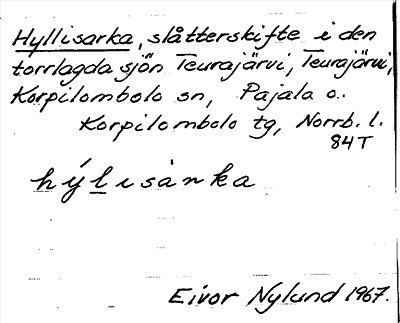 Hyllisarka, slåtterskifte i den
torrlagda sjön Teurajärvi, Teurajärvi,
Korpilombolo sn, Pajala o.
Korpilombolo tg, Norrb. l.
84T
hýl̲ısànka
Eivor Nylund 1967.